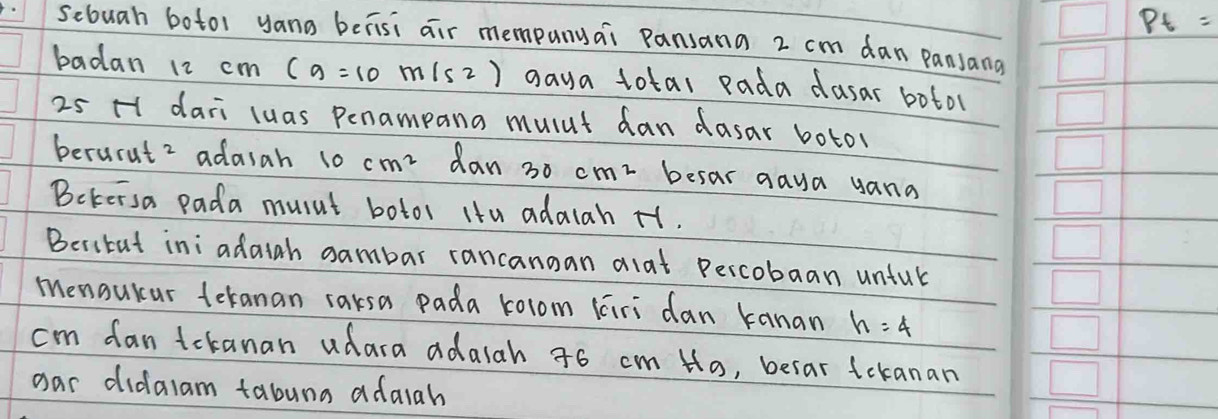 Sebuah botol yang berisi air mempunyai Pansang 2 cm dan panjang
Pt =
badan 12 cm (g=10 m/s2) gaya total pada dasar botol
25 H dari luas penampang mulut dan dasar botol
berurut² adalah 10 cm² dan 30 cm² besar gaya yang
Bekersa pada mulut botol itu adalah H.
Berikut ini adalah gambar rancangan alat Percobaan untuk
mengukur tekanan raksa pada kolom kiri dan kanan h=4
cm dan tekanan udara adalah 76 cm Hg, besar tekanan
gas didalam tabung adalah